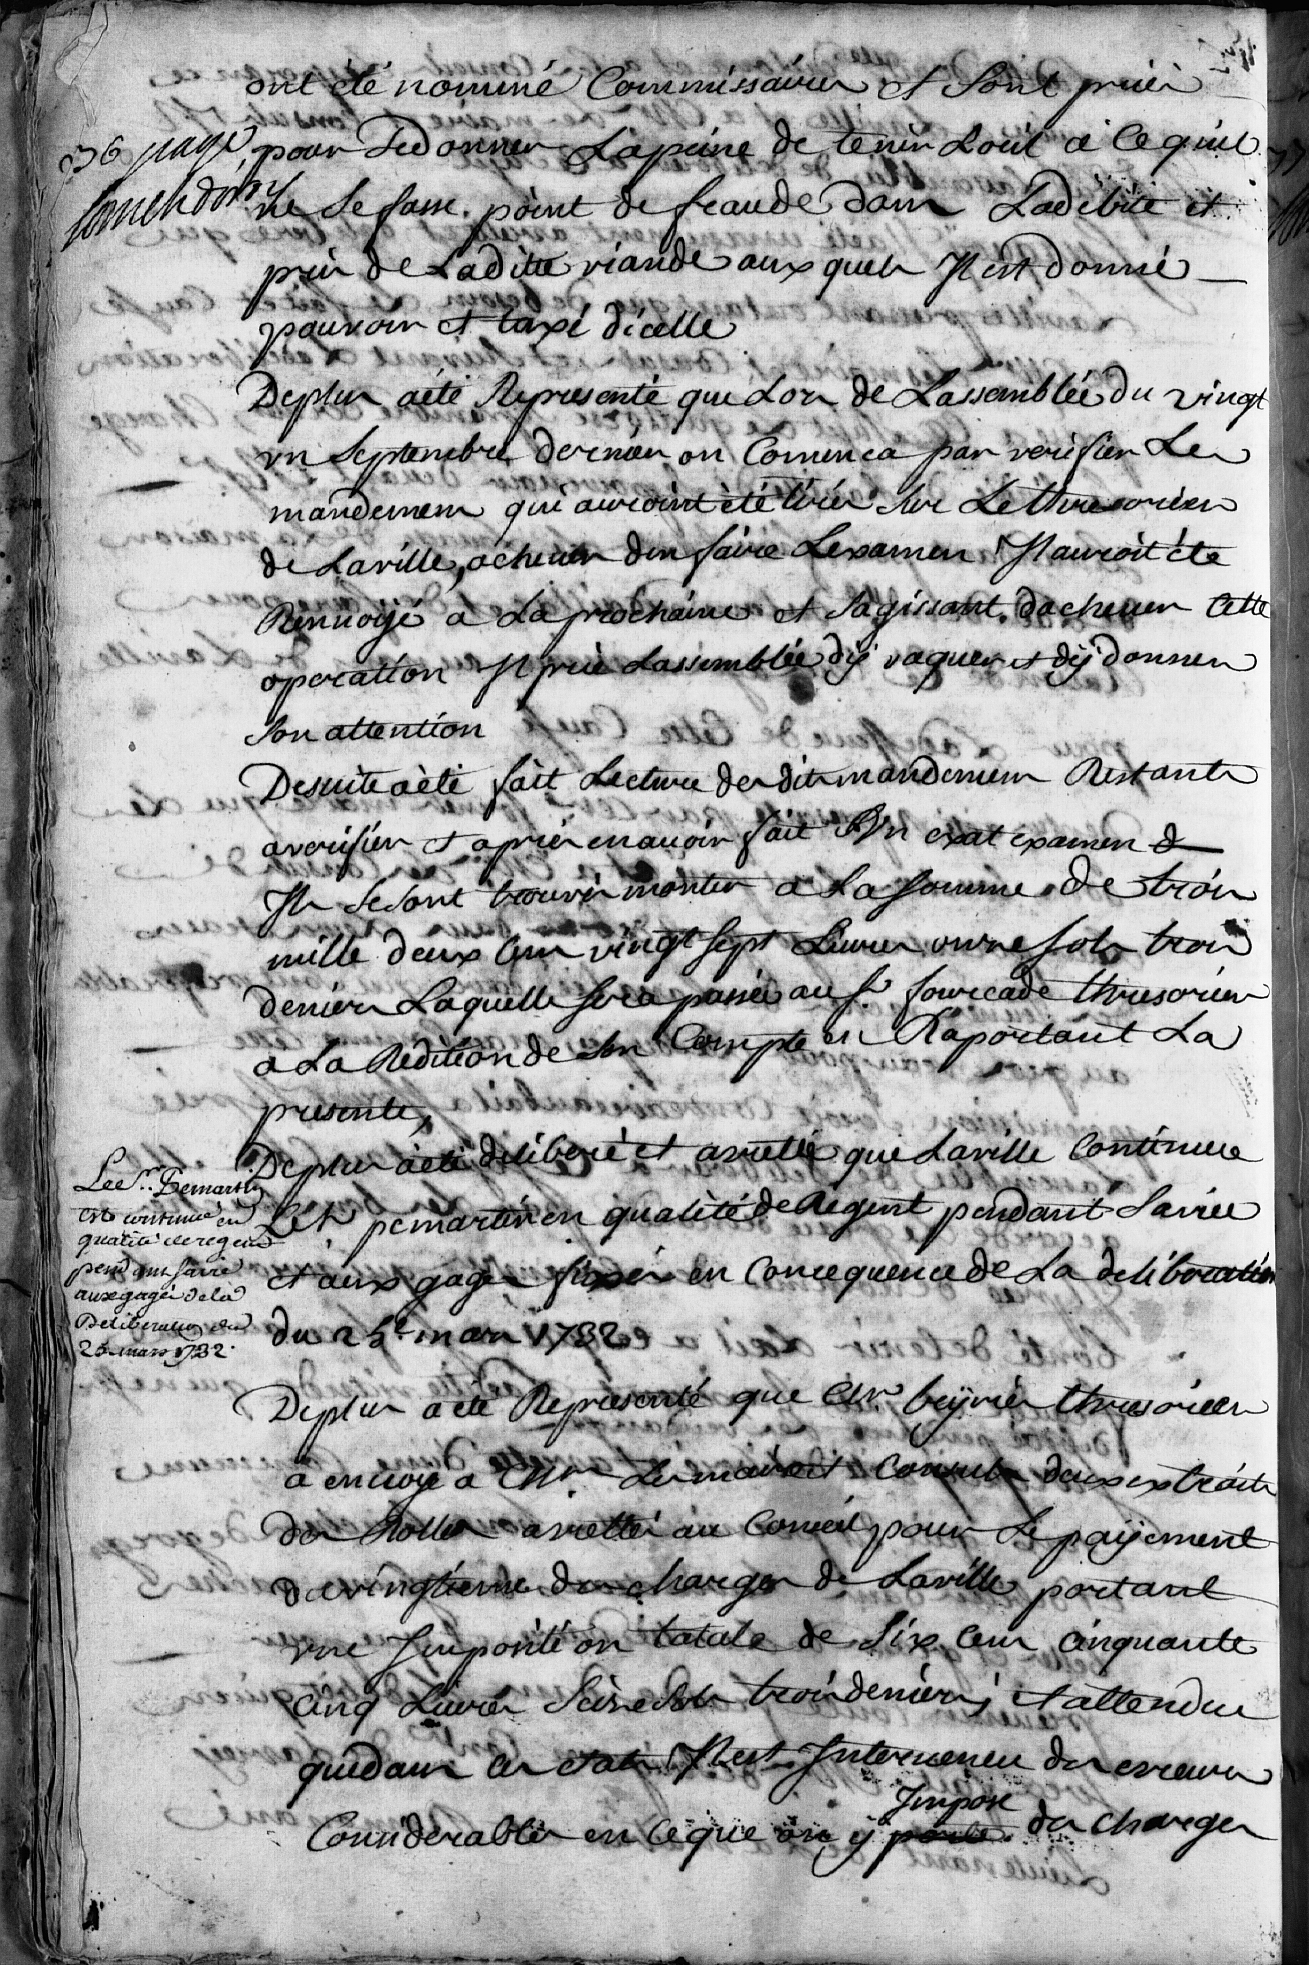 ont été nommé Commissaires et Sont priés
36 page
pour Sedonner Lapeine de tenir Loeil a ce quil
ne Se fasse point de fraude dans Ladebite et
prix de Laditte viande auxquels Il est donné
pouvoir et taxe dicelle
Deplus aété Representé que Lors de Lassemblée du vingt
un Septembre dernier on Commenca par verifier Les
mandemens qui auroint été tirés Sur Lethresorier
de Laville, achever den faire Lexamen Il auroit été
Renvoyé a Laprochaine et Sagissant dachever Cette
operattion Il prie Lassemblée dÿ vaquer et dÿ donner
Son attention
Desuite aété fait Lecture desdits mandemens Restants
averifier et aprés enavoir fait Un exat examen &
Ils Se Sont trouvés monter a La Somme de trois
mille deux Cens vingt Sept Livres onse Sols trois
deniers Laquelle Sera passée au Sr. fourcade thresorier
a La Redition de Son Compte en Raportant La
presente,
Deplus aété deliberé et arretté que Laville Continue
Le Sr. pemartin en qualité de Regent pendant Lannée
et aux gages fixés en Concequence de La deliberation
du 25e. mars 1732
Le Sr. Pemartin
est continué en
qualité de regent
pendant
aux gages de la
Deliberation du
25 mars 1732.
Deplus a été Representé que Mr. beÿriés thresorier
a envoyé a Mrs. Les maire et Consuls deux extraits
des Rolles arrettés au Conseil pour Le paÿement
du vingtieme des charges de Laville portant
une Imposition totale de Six Cens Cinquante
Cinq Livres Seise Sols trois deniers; et attendu
que dans Ces etats Il est Intervenu des erreurs
Considerables en Ceque on ÿ Impose des charges